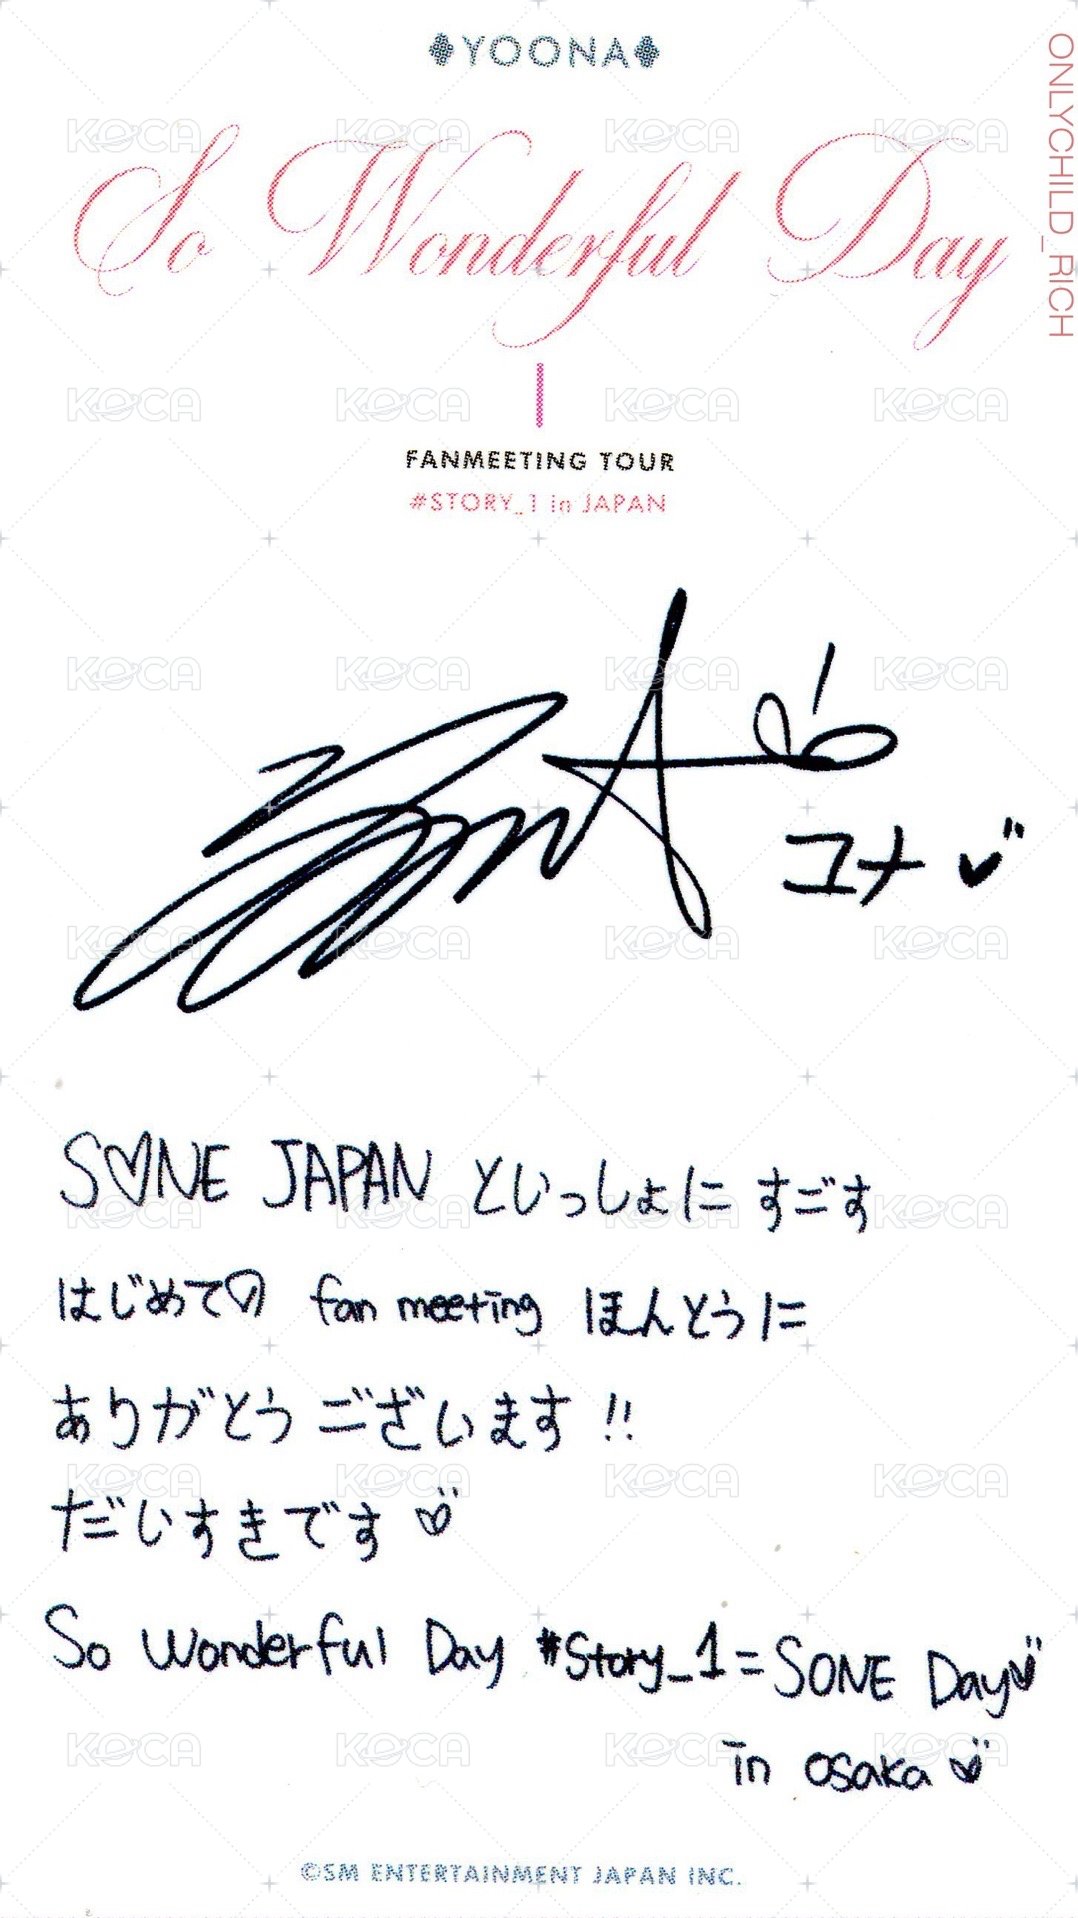 YOONA
So Wonderful Day
FANMEETING TOUR
#STORY_1 in JAPAN
ユナ
S♡NE JAPAN といっしょに すごす
はじめて♡ fan meeting ほんとうに
ありがとう ございます!!
だいすきです♡
So Wonderful Day #Story_1 = SONE Day♡
in osaka♡
©SM ENTERTAINMENT JAPAN INC.
ONLYCHILD_RICH
KOCA